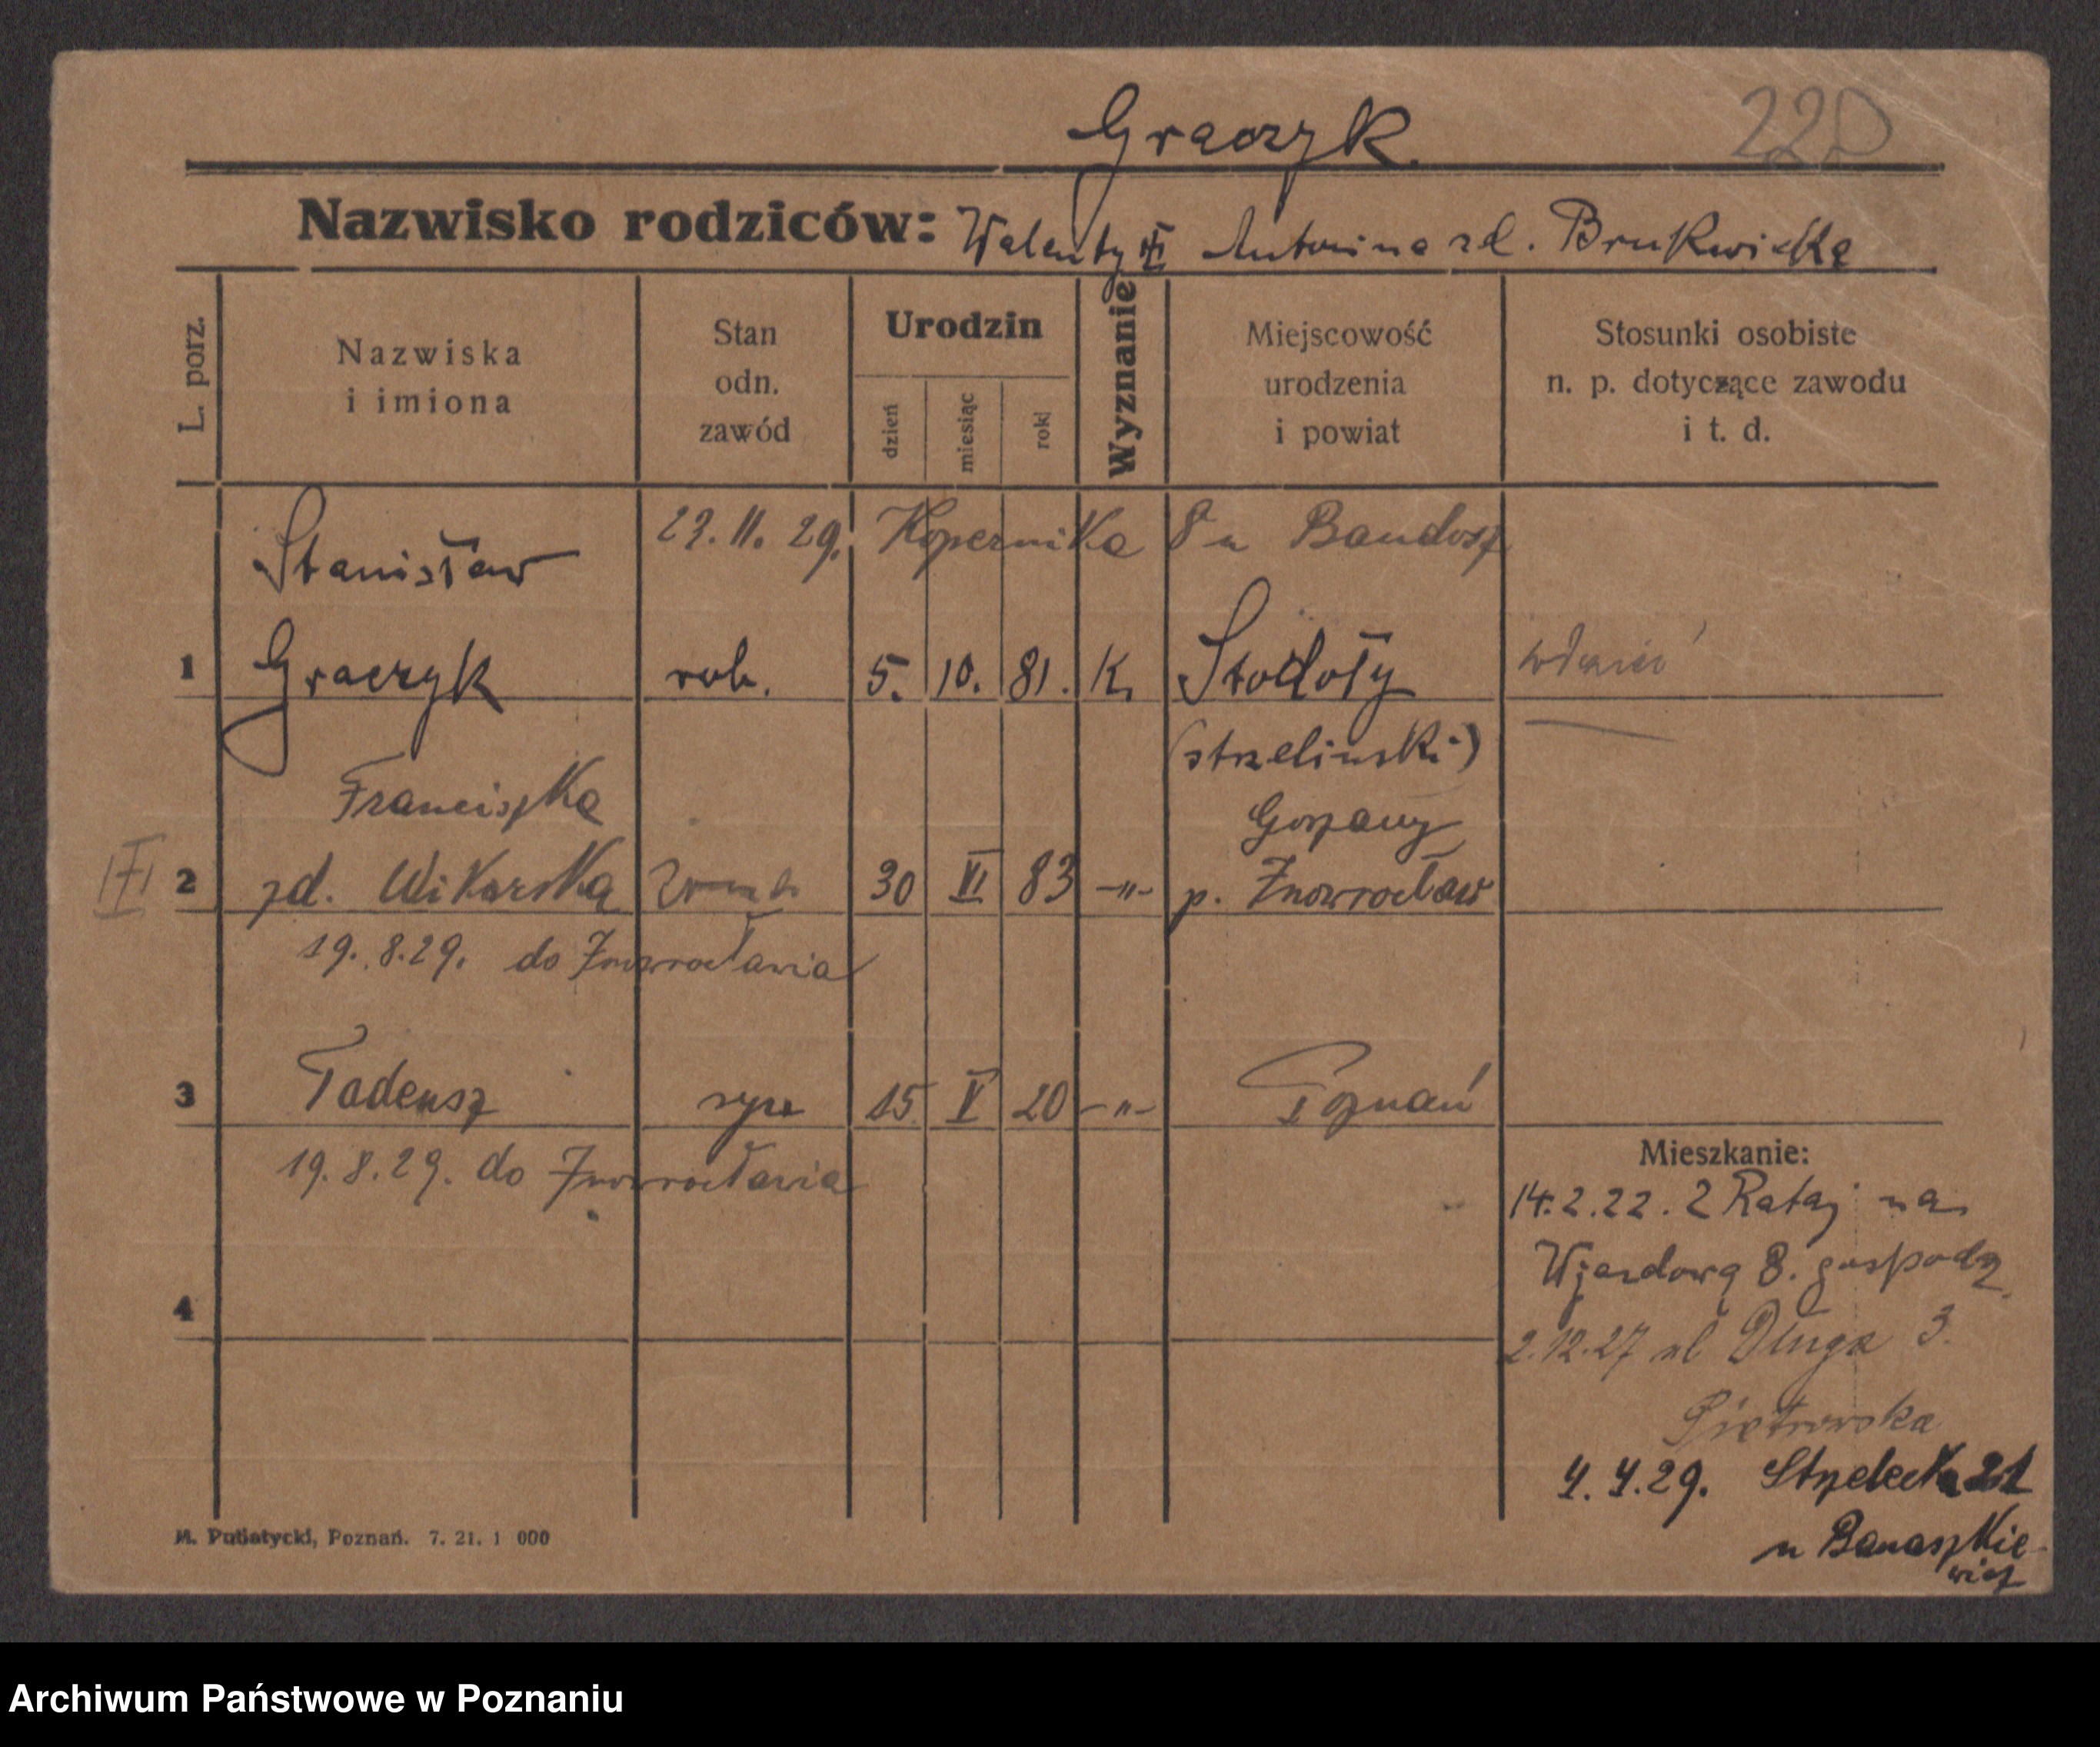 Graczyk.
220
Nazwisko rodziców: Walenty Antonina zd. Brukwicka
L. porz.
Nazwiska
i imiona
Stan
odn.
zawód
Urodzin
dzień
miesiąc
rok
Wyznanie
Miejscowość
urodzenia
i powiat
Stosunki osobiste
n. p. dotyczące zawodu
i t. d.
23.11.29. Kopernika 8 u Bandosz
Stanisław
1 Graczyk rob. 5. 10. 81. K. Stodoły
(strzelinski)
Franciszka
2 zd. Wikarska 30 VI 83 -„- p. Inowrocław
19.8.29. do Inowrocławia
3 Tadeusz syn 15 V 20 -„- Poznań
19.8.29. do Inowrocławia
4
Mieszkanie:
14.2.22. z Rataj na
Wjazdową 8. gospodz.
2.12.27 ul Długa 3.
Piotrowska
4.4.29. Strzelecka 21
u Banaszkie-
wicz
M. Putiatycki, Poznań. 7. 21. 1 000
Archiwum Państwowe w Poznaniu